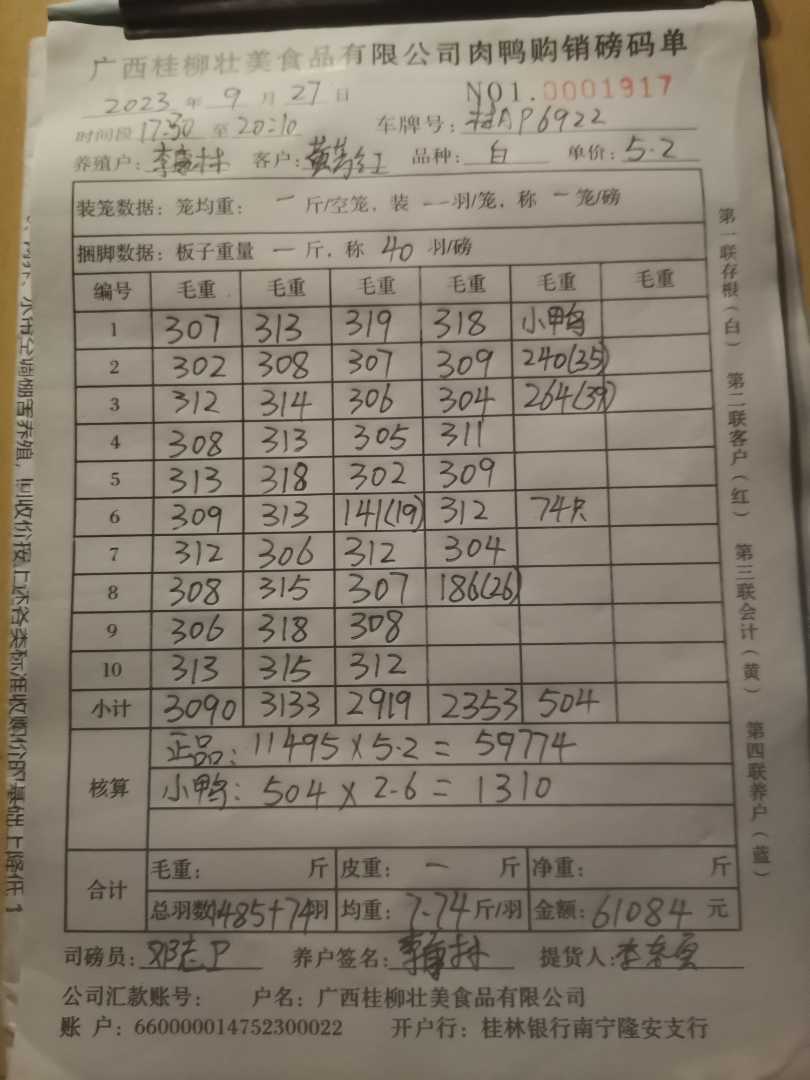 广西桂柳壮美食品有限公司肉鸭购销磅码单
2023年 9月 27日 NO1.0001917
时间段 17:30 至 20:10 车牌号: 桂AP6922
养殖户: 李 林 客户: 黄 红 品种: 白 单价: 5.2
装笼数据: 笼均重: 一 斤/空笼, 装 一 羽/笼, 称 一 笼/磅
捆脚数据: 板子重量 一 斤, 称 40 羽/磅
编号 毛重 毛重 毛重 毛重 毛重 毛重
1 307 313 319 318 小鸭
2 302 308 307 309 240(35)
3 312 314 306 304 264(39)
4 308 313 305 311
5 313 318 302 309
6 309 313 141(19) 312 74只
7 312 306 312 304
8 308 315 307 186(26)
9 306 318 308
10 313 315 312
小计 3090 3133 2919 2353 504
核算
正品: 11495×5.2=59774
小鸭: 504×2.6=1310
合计
毛重: 斤 皮重: 一 斤 净重: 斤
总羽数1485+74羽 均重: 7.74斤/羽 金额: 61084元
司磅员: 邓志卫 养户签名: 李 林 提货人: 李
公司汇款账号: 户名: 广西桂柳壮美食品有限公司
账 户: 660000014752300022 开户行: 桂林银行南宁隆安支行
第一联存根(白) 第二联客户(红) 第三联会计(黄) 第四联养户(蓝)